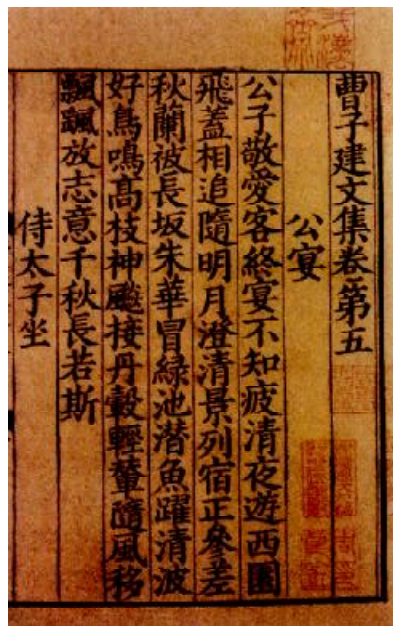 曹子建文集卷第五
公宴
公子敬愛客終宴不知疲清夜遊西園
飛蓋相追隨明月澄清景列宿正參差
秋蘭被長坂朱華冒綠池潜魚躍清波
好鳥鳴高枝神飈接丹轂輕輦隨風移
飄颻放志意千秋長若斯
侍太子坐